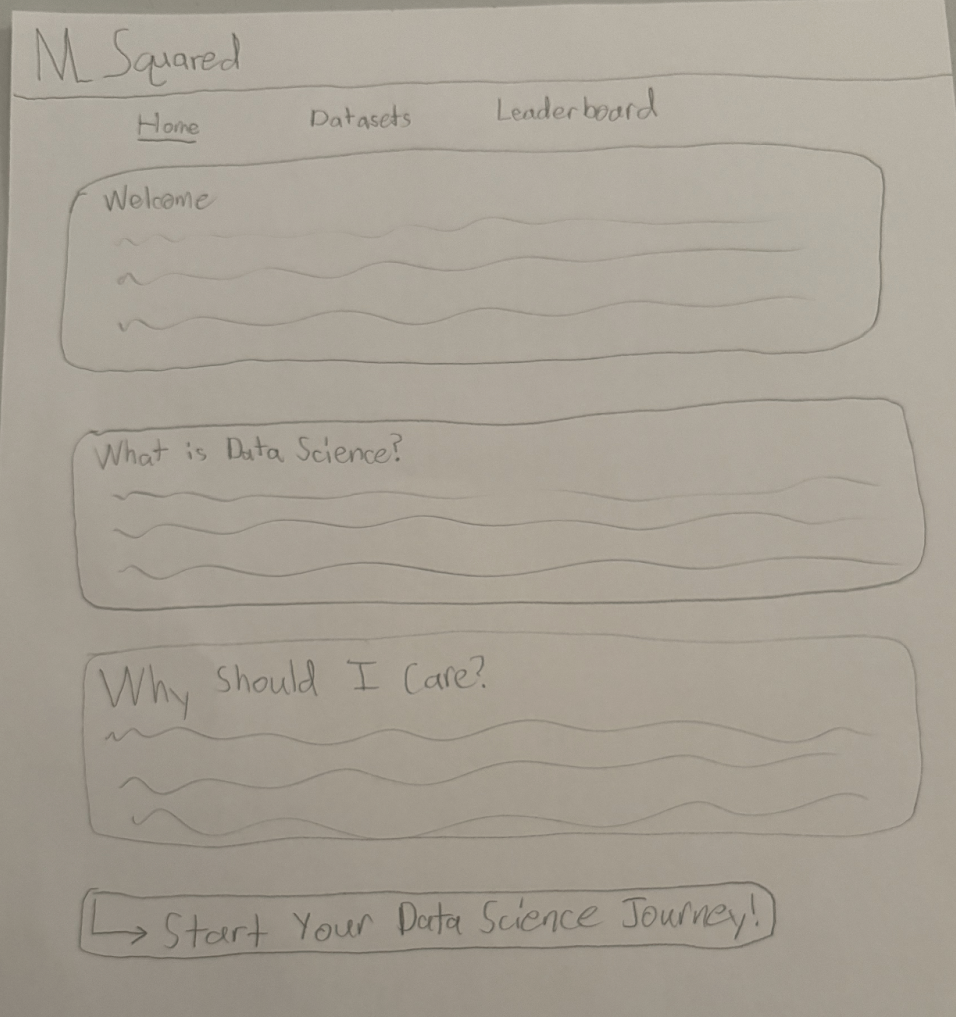 M Squared
Home Datasets Leaderboard
Welcome
What is Data Science?
Why Should I Care?
Start Your Data Science Journey!